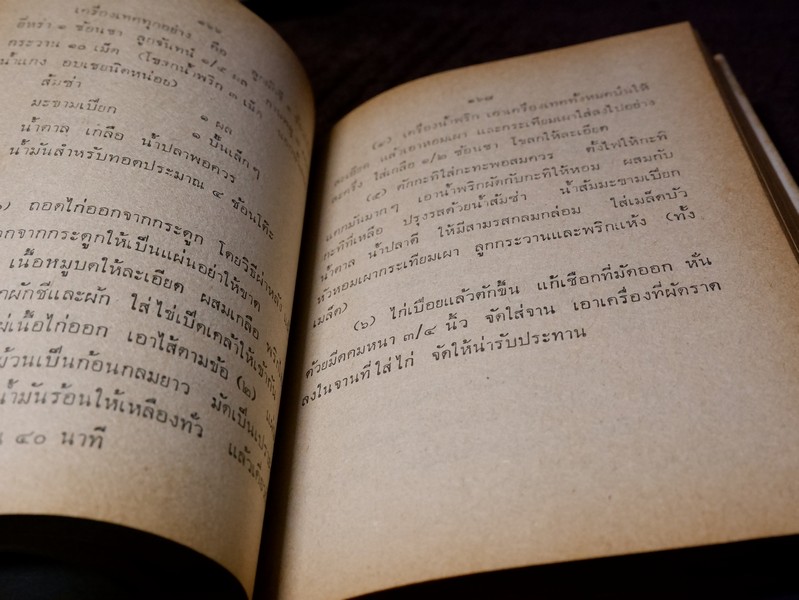 เครื่องเทศทุกอย่าง คือ
ยี่หร่า ๑ ช้อนชา ลูกจันทน์ ๑/๔ ผล
กระวาน ๑๐ เม็ด (โขลกน้ำพริก ๓ เม็ด
น้ำแกง อบเชยนิดหน่อย)
ส้มซ่า ๑ ผล
มะขามเปียก ๑ ปั้นเล็กๆ
น้ำตาล เกลือ น้ำปลาพอควร
น้ำมันสำหรับทอดประมาณ ๔ ช้อนโต๊ะ
ถอดไก่ออกจากกระดูก โดยวิธีผ่าหลัง
จากกระดูกให้เป็นแผ่นอย่าให้ขาด
เนื้อหมูบดให้ละเอียด ผสมเกลือ
ผักชีและผัก ใส่ไข่เป็ดเคล้าให้เข้ากัน
แผ่เนื้อไก่ออก เอาไส้ตามข้อ (๒)
ม้วนเป็นก้อนกลมยาว มัดเป็นเปราะ
น้ำมันร้อนให้เหลืองทั่ว แล้ว
๔๐ นาที
๑๖๗
(๔) เครื่องน้ำพริก เอาเครื่องเทศทั้งหมดป่นให้
ละเอียด แล้วเอาหอมเผา และกระเทียมเผาใส่ลงไปอย่าง
ละครึ่ง ใส่เกลือ ๑/๒ ช้อนชา โขลกให้ละเอียด
(๕) ตักกะทิใส่กะทะพอสมควร ตั้งไฟให้กะทิ
แตกมันมากๆ เอาน้ำพริกผัดกับกะทิให้หอม ผสมกับ
กะทิที่เหลือ ปรุงรสด้วยน้ำส้มซ่า น้ำส้มมะขามเปียก
น้ำตาล น้ำปลาดี ให้มีสามรสกลมกล่อม ใส่เมล็ดบัว
หัวหอมเผากระเทียมเผา ลูกกระวานและพริกแห้ง (ทั้ง
เมล็ด)
(๖) ไก่เปื่อยแล้วตักขึ้น แก้เชือกที่มัดออก หั่น
ด้วยมีดคมหนา ๓/๔ นิ้ว จัดใส่จาน เอาเครื่องที่ผัดราด
ลงในจานที่ใส่ไก่ จัดให้น่ารับประทาน